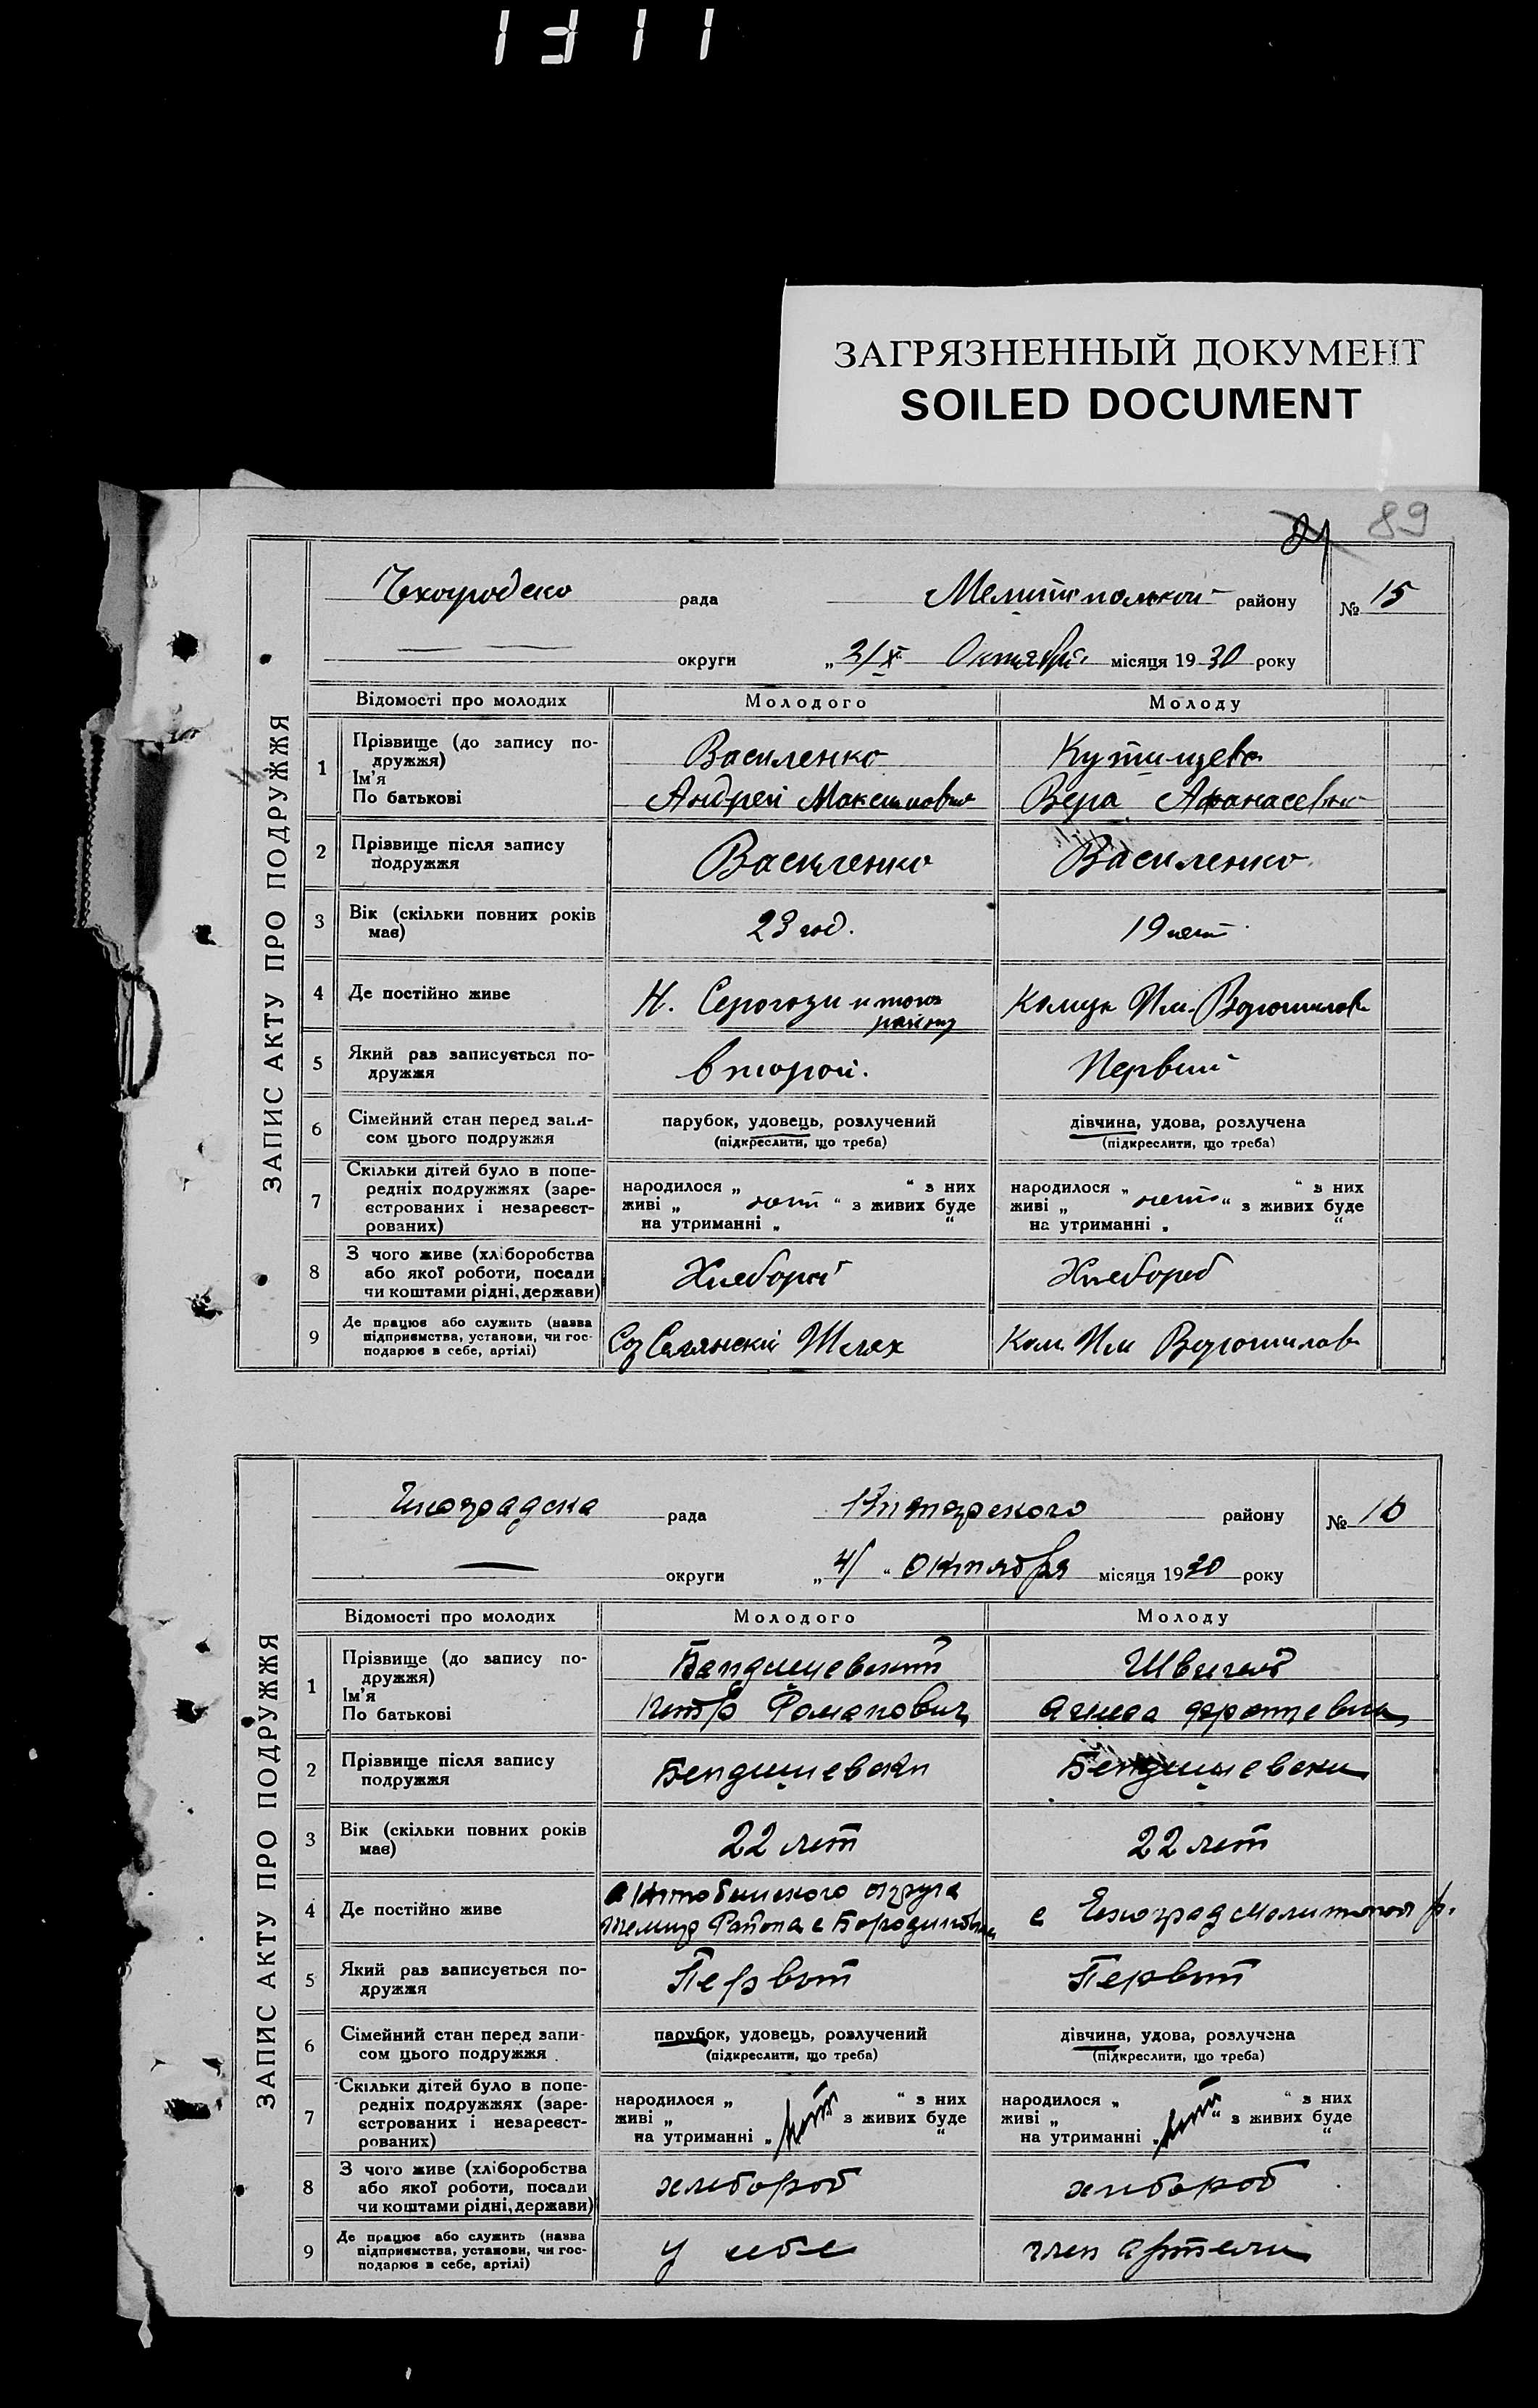 1311
ЗАГРЯЗНЕННЫЙ ДОКУМЕНТ
SOILED DOCUMENT
89
ЗАПИС АКТУ ПРО ПОДРУЖЖЯ
рада района № 15
округи „ 2/X Октября місяця 19 30 року
Відомості про молодих Молодого Молоду
1 Прізвище (до запису по-
дружжя)
Ім'я
По батькові
Василенко
Андрей Максимович
Вера Афанасевна
2 Прізвище після запису
подружжя
Василенко Василенко
3 Вік (скільки повних років
має)
23 год. 19 лет
4 Де постійно живе
Н. Серогози и того
району
Комуна Им. Ворошилова
5 Який раз записується по-
дружжя
второй. Первий
6 Сімейний стан перед запи-
сом цього подружжя
парубок, удовець, розлучений
(підкреслити, що треба)
дівчина, удова, розлучена
(підкреслити, що треба)
7 Скільки дітей було в попе-
редніх подружжях (заре-
єстрованих і незареєст-
рованих)
народилося „ “ з них
живі „ нет “ з живих буде
на утриманні „ “
народилося „ “ з них
живі „ нет “ з живих буде
на утриманні „ “
8 З чого живе (хліборобства
або якої роботи, посади
чи коштами рідні, держави)
Хлебороб Хлебороб
9 Де працює або служить (назва
підприємства, установи, чи гос-
подарює в себе, артілі)
Соз Селянский Шлях Ком Им Ворошилова
ЗАПИС АКТУ ПРО ПОДРУЖЖЯ
рада району № 16
округи „ 4/ “ октября місяця 19 30 року
Відомості про молодих Молодого Молоду
1 Прізвище (до запису по-
дружжя)
Ім'я
По батькові
Романович
2 Прізвище після запису
подружжя
3 Вік (скільки повних років
має)
22 лет 22 лет
4 Де постійно живе
округа
Района с
с
5 Який раз записується по-
дружжя
Первый Первый
6 Сімейний стан перед запи-
сом цього подружжя
парубок, удовець, розлучений
(підкреслити, що треба)
дівчина, удова, розлучена
(підкреслити, що треба)
7 Скільки дітей було в попе-
редніх подружжях (заре-
єстрованих і незареєст-
рованих)
народилося „ “ з них
живі „ нет з живих буде
на утриманні „ “
народилося „ “ з них
живі „ нет “ з живих буде
на утриманні „ “
8 З чого живе (хліборобства
або якої роботи, посади
чи коштами рідні, держави)
хлебороб хлебороб
9 Де працює або служить (назва
підприємства, установи, чи гос-
подарює в себе, артілі)
у себе член артели